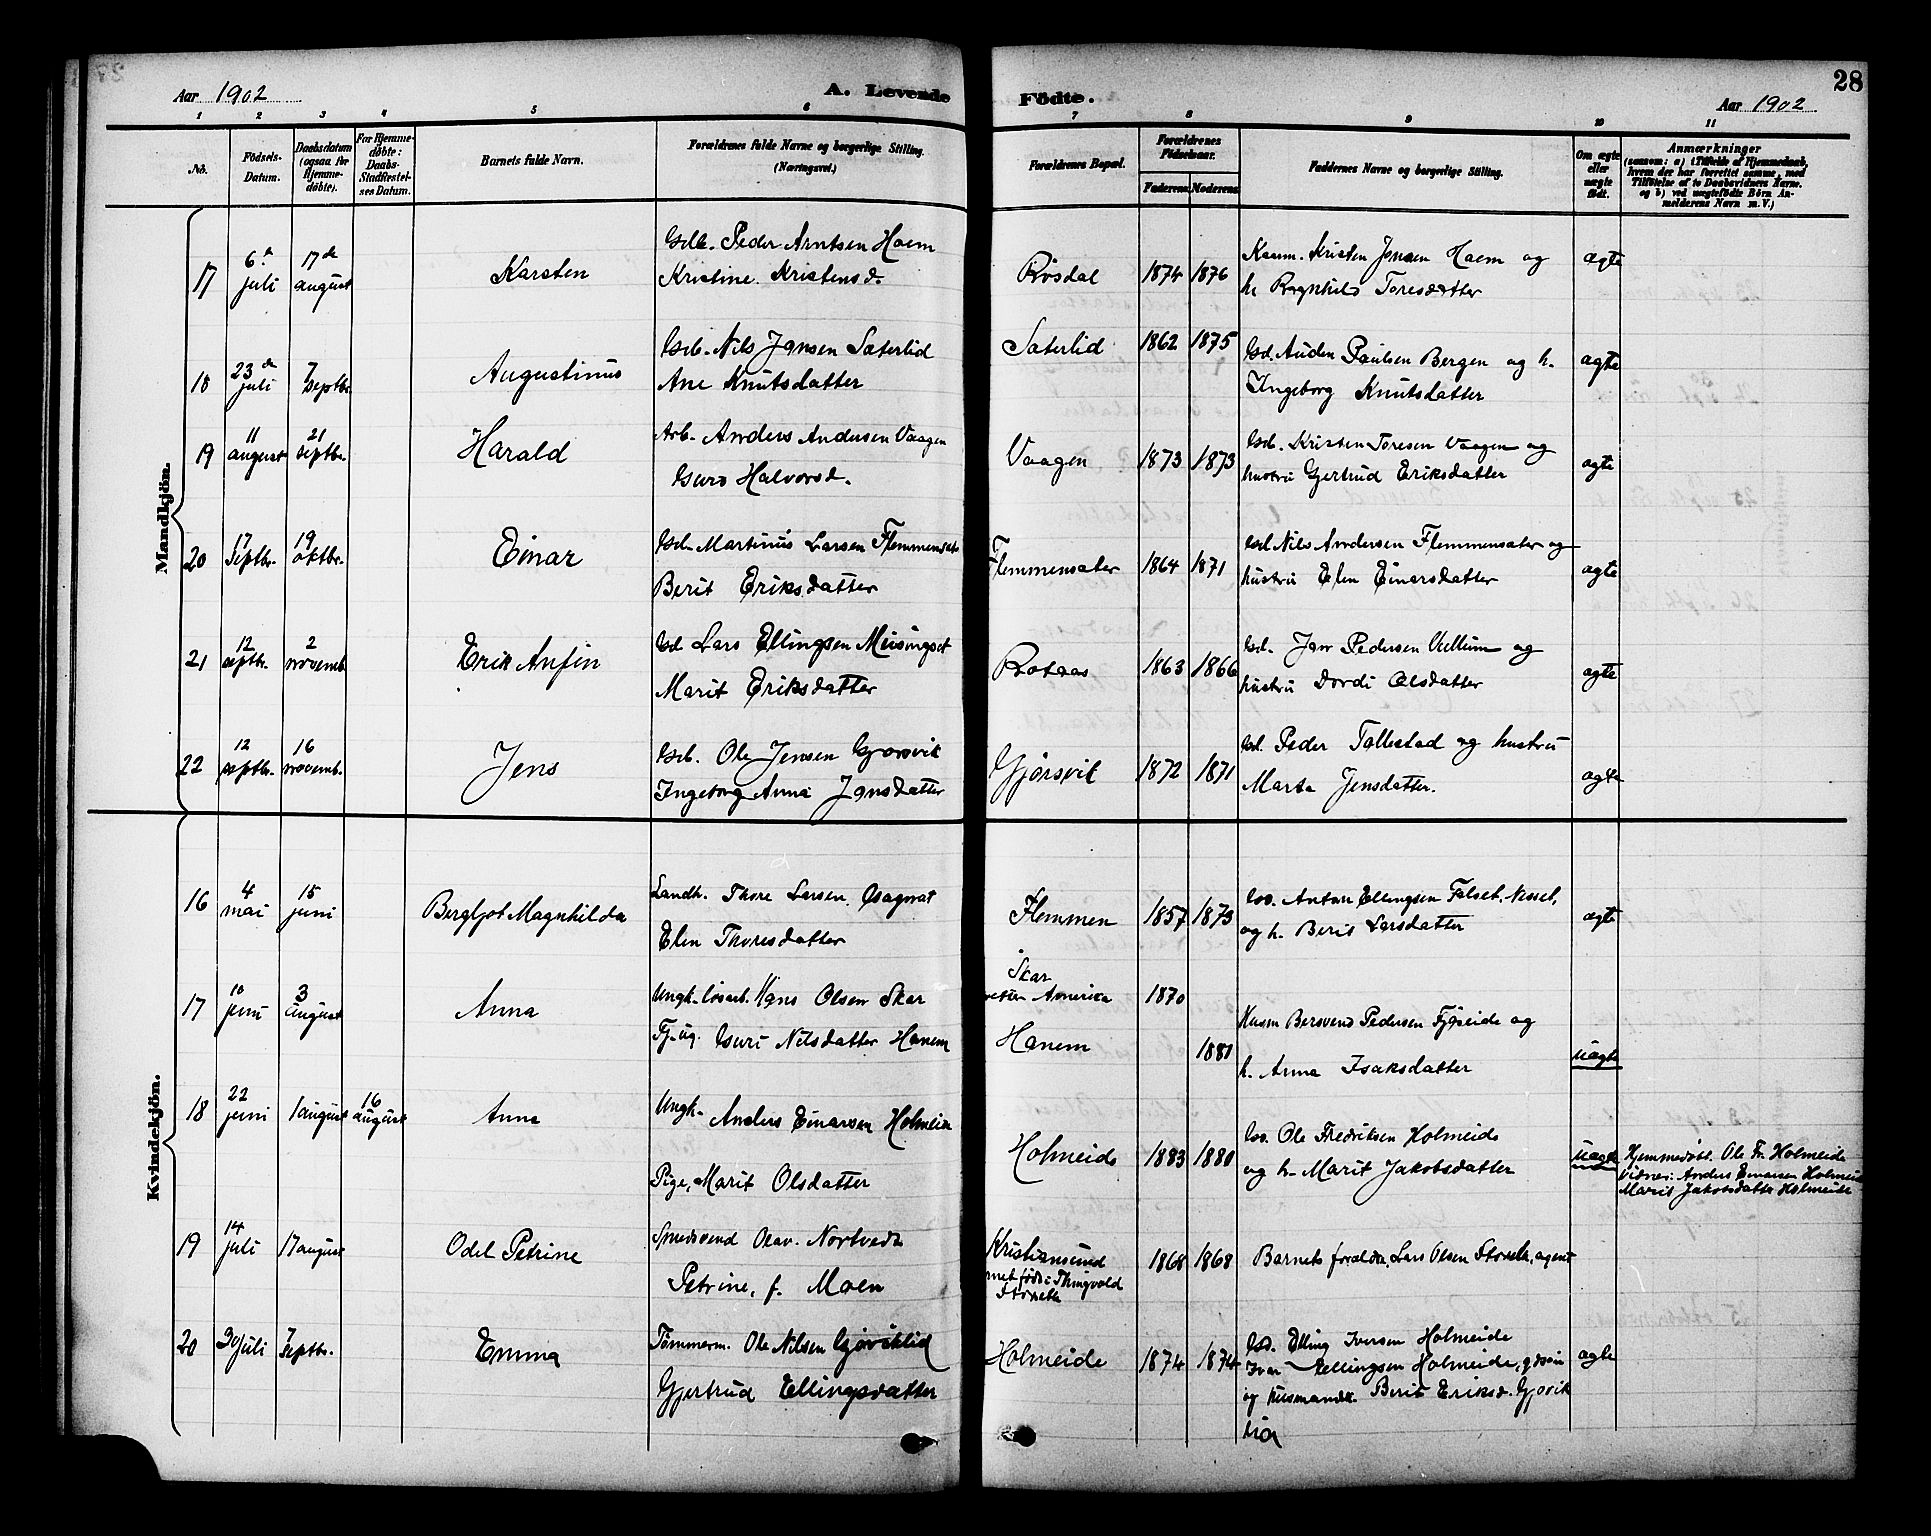 28
Aar 1902
A. Levende Födte.
Aar 1902
1 2 3 4 5 6 7 8 9 10 11
No.
Födsels-
Datum.
Daabsdatum
(ogsaa for
Hjemme-
döbte).
For Hjemme-
döbte:
Daabs-
Stadfæstel-
ses Datum.
Barnets fulde Navn.
Forældrenes fulde Navne og borgerlige Stilling.
(Næringsvei.)
Forældrenes Bopæl.
Forældrenes
Födselsaar.
Faderens Moderens
Faddernes Navne og borgerlige Stilling.
Om ægte
eller
uægte
födt.
Anmærkninger
(saasom: a) i Tilfælde af Hjemmedaab,
hvem der har forrettet samme, med
Tilföielse af to Daabsvidners Navne.
og b) ved uægtefödte Börn An-
melderens Navn m. V.)
Mandkjön.
17
6te juli
17de august
Karsten
Gdb. Peder Arntsen Haem
Kristine Kristensd.
Rösdal
1874 1876
Kaarm. Kristen Jonsen Haem og
h. Ragnhild Toresdatter
ægte
18
23de juli
7 septbr.
Augustinus
Gdb. Nils Jansen Sæterlid
Ane Knutsdatter
Sæterlid
1862 1875
Gd. Auden Paulsen Bergen og h.
Ingeborg Knutsdatter
ægte
19
11 august
21 septbr.
Harald
Arb. Anders Andersen Vaagen
Guro Halvorsd.
Vaagen
1873 1873
Gdb. Kristen Toresen Vaagen og
hustru Gjertrud Eriksdatter
ægte
20
17 septbr.
19 oktbr.
Einar
Gd. Martinus Larsen Flemmensæt.
Berit Eriksdatter
Flemmensæter
1864 1871
Gd Nils Andersen Flemmensæter og
hustru Elen Einarsdatter
ægte
21
12 septbr.
2 novemb.
Erik Anfin
Gd Lars Ellingsen Meisingset
Marit Eriksdatter
Rotaas
1863 1866
Gd. Jan Pedersen Vullum og
hustru Dordi Olsdatter
ægte
22
12 septbr.
16 novemb.
Jens
Gdb. Ole Jensen Gjörsvik
Ingeborg Anna Jansdatter
Gjörsvik
1872 1871
Gd. Peder Tallestad og hustru
Marta Jensdatter.
ægte
Kvindekjön.
16
4 mai
15 juni
Bergljot Magnhilda
Landh. Thore Larsen
Elen Thoresdatter
Flemmen
1857 1873
Anton Ellingsen Falset, Nesset,
og h. Berit Larsdatter
ægte
17
10 juni
3 august
Anna
Ungk. lösarb. Hans Olsen Skar
Tj. ug. Guri Nilsdatter Hanem
Skar
Amerika
1870
Hanem
1881
Husm Bersvend Pedersen Fjöseide og
h. Anna Isaksdatter
uægte
18
22 juni
1 august
16 august
Anna
Ungk. Anders Einarsen Holmeide
Pige, Marit Olsdatter
Holmeide
1883 1880
Ole Fredriksen Holmeide
og h. Marit Jakobsdatter
uægte
Hjemmedöbt. Ole Fr. Holmeide
Vidner: Anders Einarsen Holmeide
Marit Jakobsdatter Holmeide
19
14 juli
17 august
Odel Petrine
Smedsvend Olav Nortvedt
Petrine, f. Moen
Kristiansund
födt i Thingvold
1868 1868
Barnets forældre, Lars Olsen agent
20
30 juli
7 septbr.
Emma
Tömmerm. Ole Nilsen Gjöviklid
Gjertrud Ellingsdatter
Holmeide
1874 1874
Gd. Elling Iversen Holmeide
Ivar Ellingsen Holmeide, gdsön
og Husmandsk. Berit Eriksd. Gjövik
lia
ægte